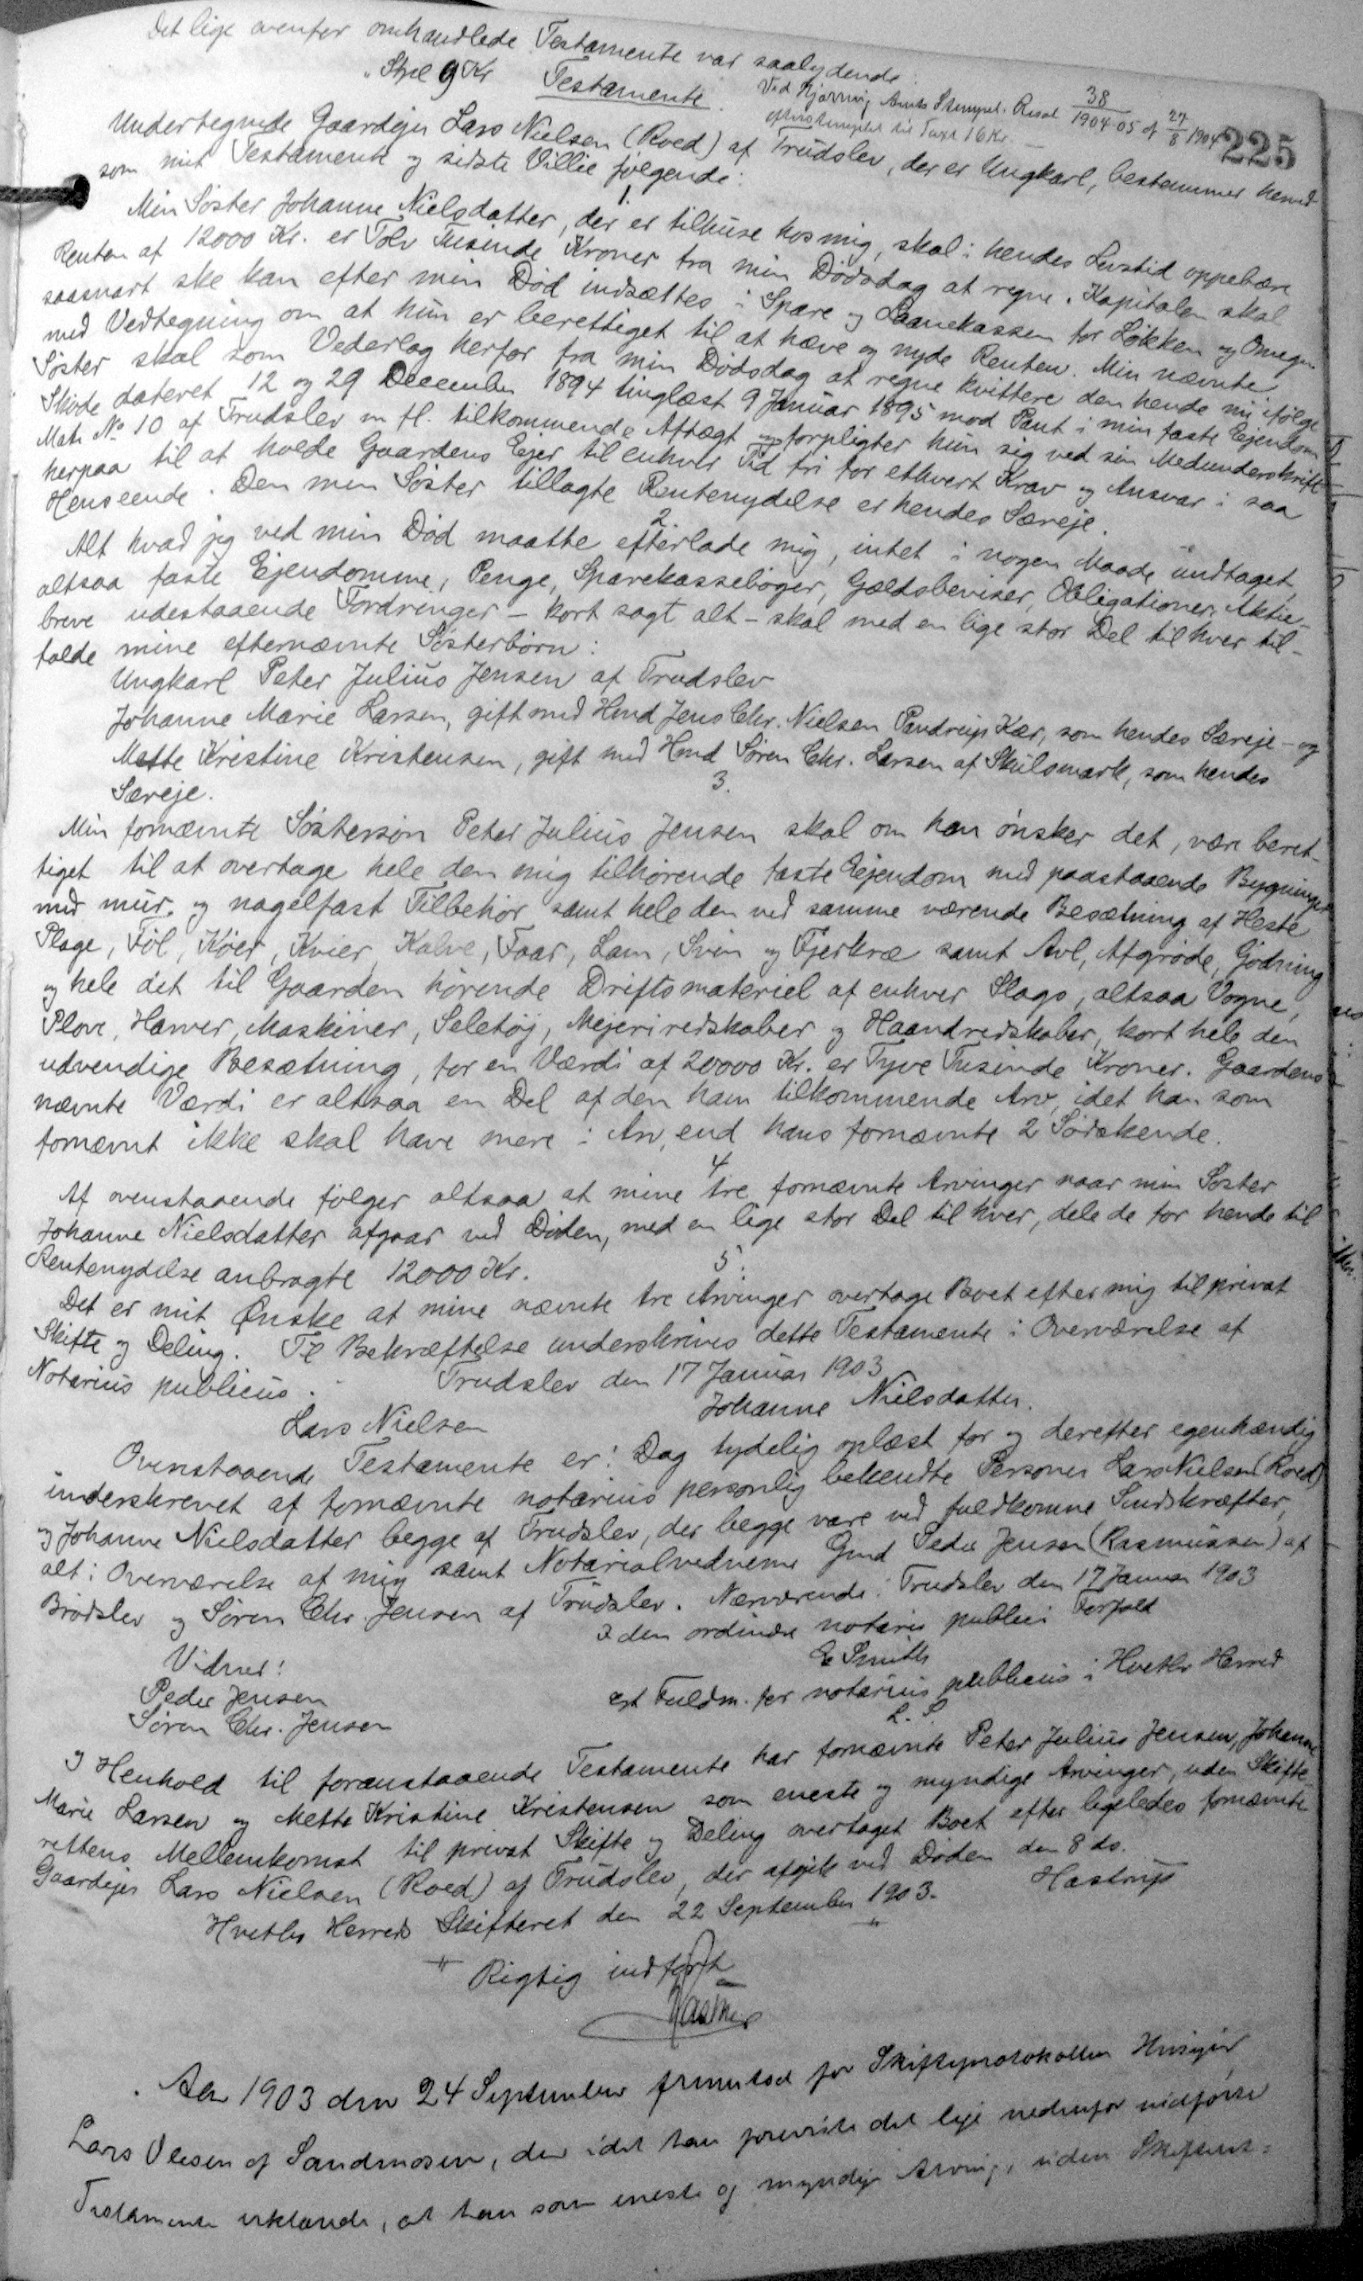 Det lige ovenfor omhandlede Testamente var saalydende:
"Stpl 9 Kr Testamente.
Ved Hjørring Amts Stempel. Resol 38/1904-05 af 27/8 1904
efterstemplet til Taxt 16 Kr. —
225
Undertegnede Gaardejer Lars Nielsen (Roed) af Trudslev, der er Ungkarl, bestemmer herved
som mit Testamente og sidste Villie følgende:
1.
Min Søster Johanne Nielsdatter, der er tilhuse hos mig, skal i hendes Livstid oppebære
Renten af 12000 Kr. er Tolv Tusinde Kroner fra min Dødsdag at regne. Kapitalen skal
saasnart ske kan efter min Død indsættes i Spare og Laanekassen for Løkken og Omegn
med Vedtegning om at hun er berettiget til at hæve og nyde Renten. Min nævnte
Søster skal som Vederlag herfor fra min Dødsdag at regne kvittere den hende nu ifølge
Skøde dateret 12 og 29 December 1894 tinglæst 9 Januar 1895 mod Pant i min faste Ejendom
Matr No 10 af Trudslev m fl. tilkommende Aftægt og forpligter hun sig ved sin Medunderskrift
herpaa til at holde Gaardens Ejer til enhver Tid fri for ethvert Krav og Ansvar i saa
Henseende. Den min Søster tillagte Rentenydelse er hendes Særeje.
2.
Alt hvad jeg ved min Død maatte efterlade mig, intet i nogen Maade undtaget,
altsaa faste Ejendomme, Penge, Sparekassebøger, Gældsbeviser, Obligationer, Aktie-
breve udestaaende Fordringer – kort sagt alt – skal med en lige stor Del til hver til-
falde mine efternævnte Søsterbørn:
Ungkarl Peter Julius Jensen af Trudslev
Johanne Marie Larsen, gift med Hmd Jens Chr. Nielsen Pandrup Kær, som hendes Særeje – og
Mette Kristine Kristensen, gift med Hmd Søren Chr. Larsen af Skulsmark, som hendes
Særeje.
3.
Min fornævnte Søstersøn Peter Julius Jensen skal om han ønsker det, være beret-
tiget til at overtage hele den mig tilhørende faste Ejendom med paastaaende Bygninger
med mur- og nagelfast Tilbehør samt hele den ved samme værende Besætning af Heste
Plage, Føl, Køer, Kvier, Kalve, Faar, Lam, Svin og Fjerkræ samt Avl, Afgrøde, Gødning
og hele det til Gaarden hørende Driftsmateriel af enhver Slags, altsaa Vogne,
Plove, Harver, Maskiner, Seletøj, Mejeriredskaber og Haandredskaber, kort hele den
udvendige Besætning, for en Værdi af 20000 Kr. er Tyve Tusinde Kroner. Gaardens
nævnte Værdi er altsaa en Del af den ham tilkommende Arv, idet han som
fornævnt ikke skal have mere i Arv, end hans fornævnte 2 Sødskende.
4
Af ovenstaaende følger altsaa at mine tre fornævnte Arvinger naar min Søster
Johanne Nielsdatter afgaar ved Døden, med en lige stor Del til hver, dele de for hende til
Rentenydelse anbragte 12000 Kr.
5.
Det er mit Ønske at mine nævnte tre Arvinger overtage Boet efter mig til privat
Skifte og Deling. Til Bekræftelse underskrives dette Testamente i Overværelse af
Notarius publicus.
Trudslev den 17 Januar 1903
Lars Nielsen Johanne Nielsdatter.
Ovenstaaende Testamente er i Dag tydelig oplæst for og derefter egenhændig
underskrevet af fornævnte notarius personlig bekendte Personer Lars Nielsen (Roed)
og Johanne Nielsdatter begge af Trudslev, der begge vare ved fuldkomne Sindskræfter,
alt i Overværelse af mig samt Notarialvidnerne Gmd Peder Jensen (Rasmussen) af
Brødslev og Søren Chr Jensen af Trudslev. Nærværende: Trudslev den 17 Januar 1903
I den ordinære notarii publici Forfald
E Smith
cst Fuldm. for notarius publicus i Hvetbo Herred
L. S.
Vidner:
Peder Jensen
Søren Chr. Jensen
I Henhold til foranstaaende Testamente har fornævnte Peter Julius Jensen, Johanne
Marie Larsen og Mette Kristine Kristensen som eneste og myndige Arvinger, uden Skifte-
rettens Mellemkomst til privat Skifte og Deling overtaget Boet efter ligeledes fornævnte
Gaardejer Lars Nielsen (Roed) af Trudslev, der afgik ved Døden den 8 ds.
Hvetbo Herreds Skifteret den 22 September 1903.
Hastrup
" Rigtig indført
Aar 1903 den 24 September fremstod for Skifteprotokollen Husejer
Lars Olesen af Sandmosen, der idet han foreviste det lige nedenfor indførte
Testamente erklærede, at han som eneste og myndige Arving, uden Skifteret=